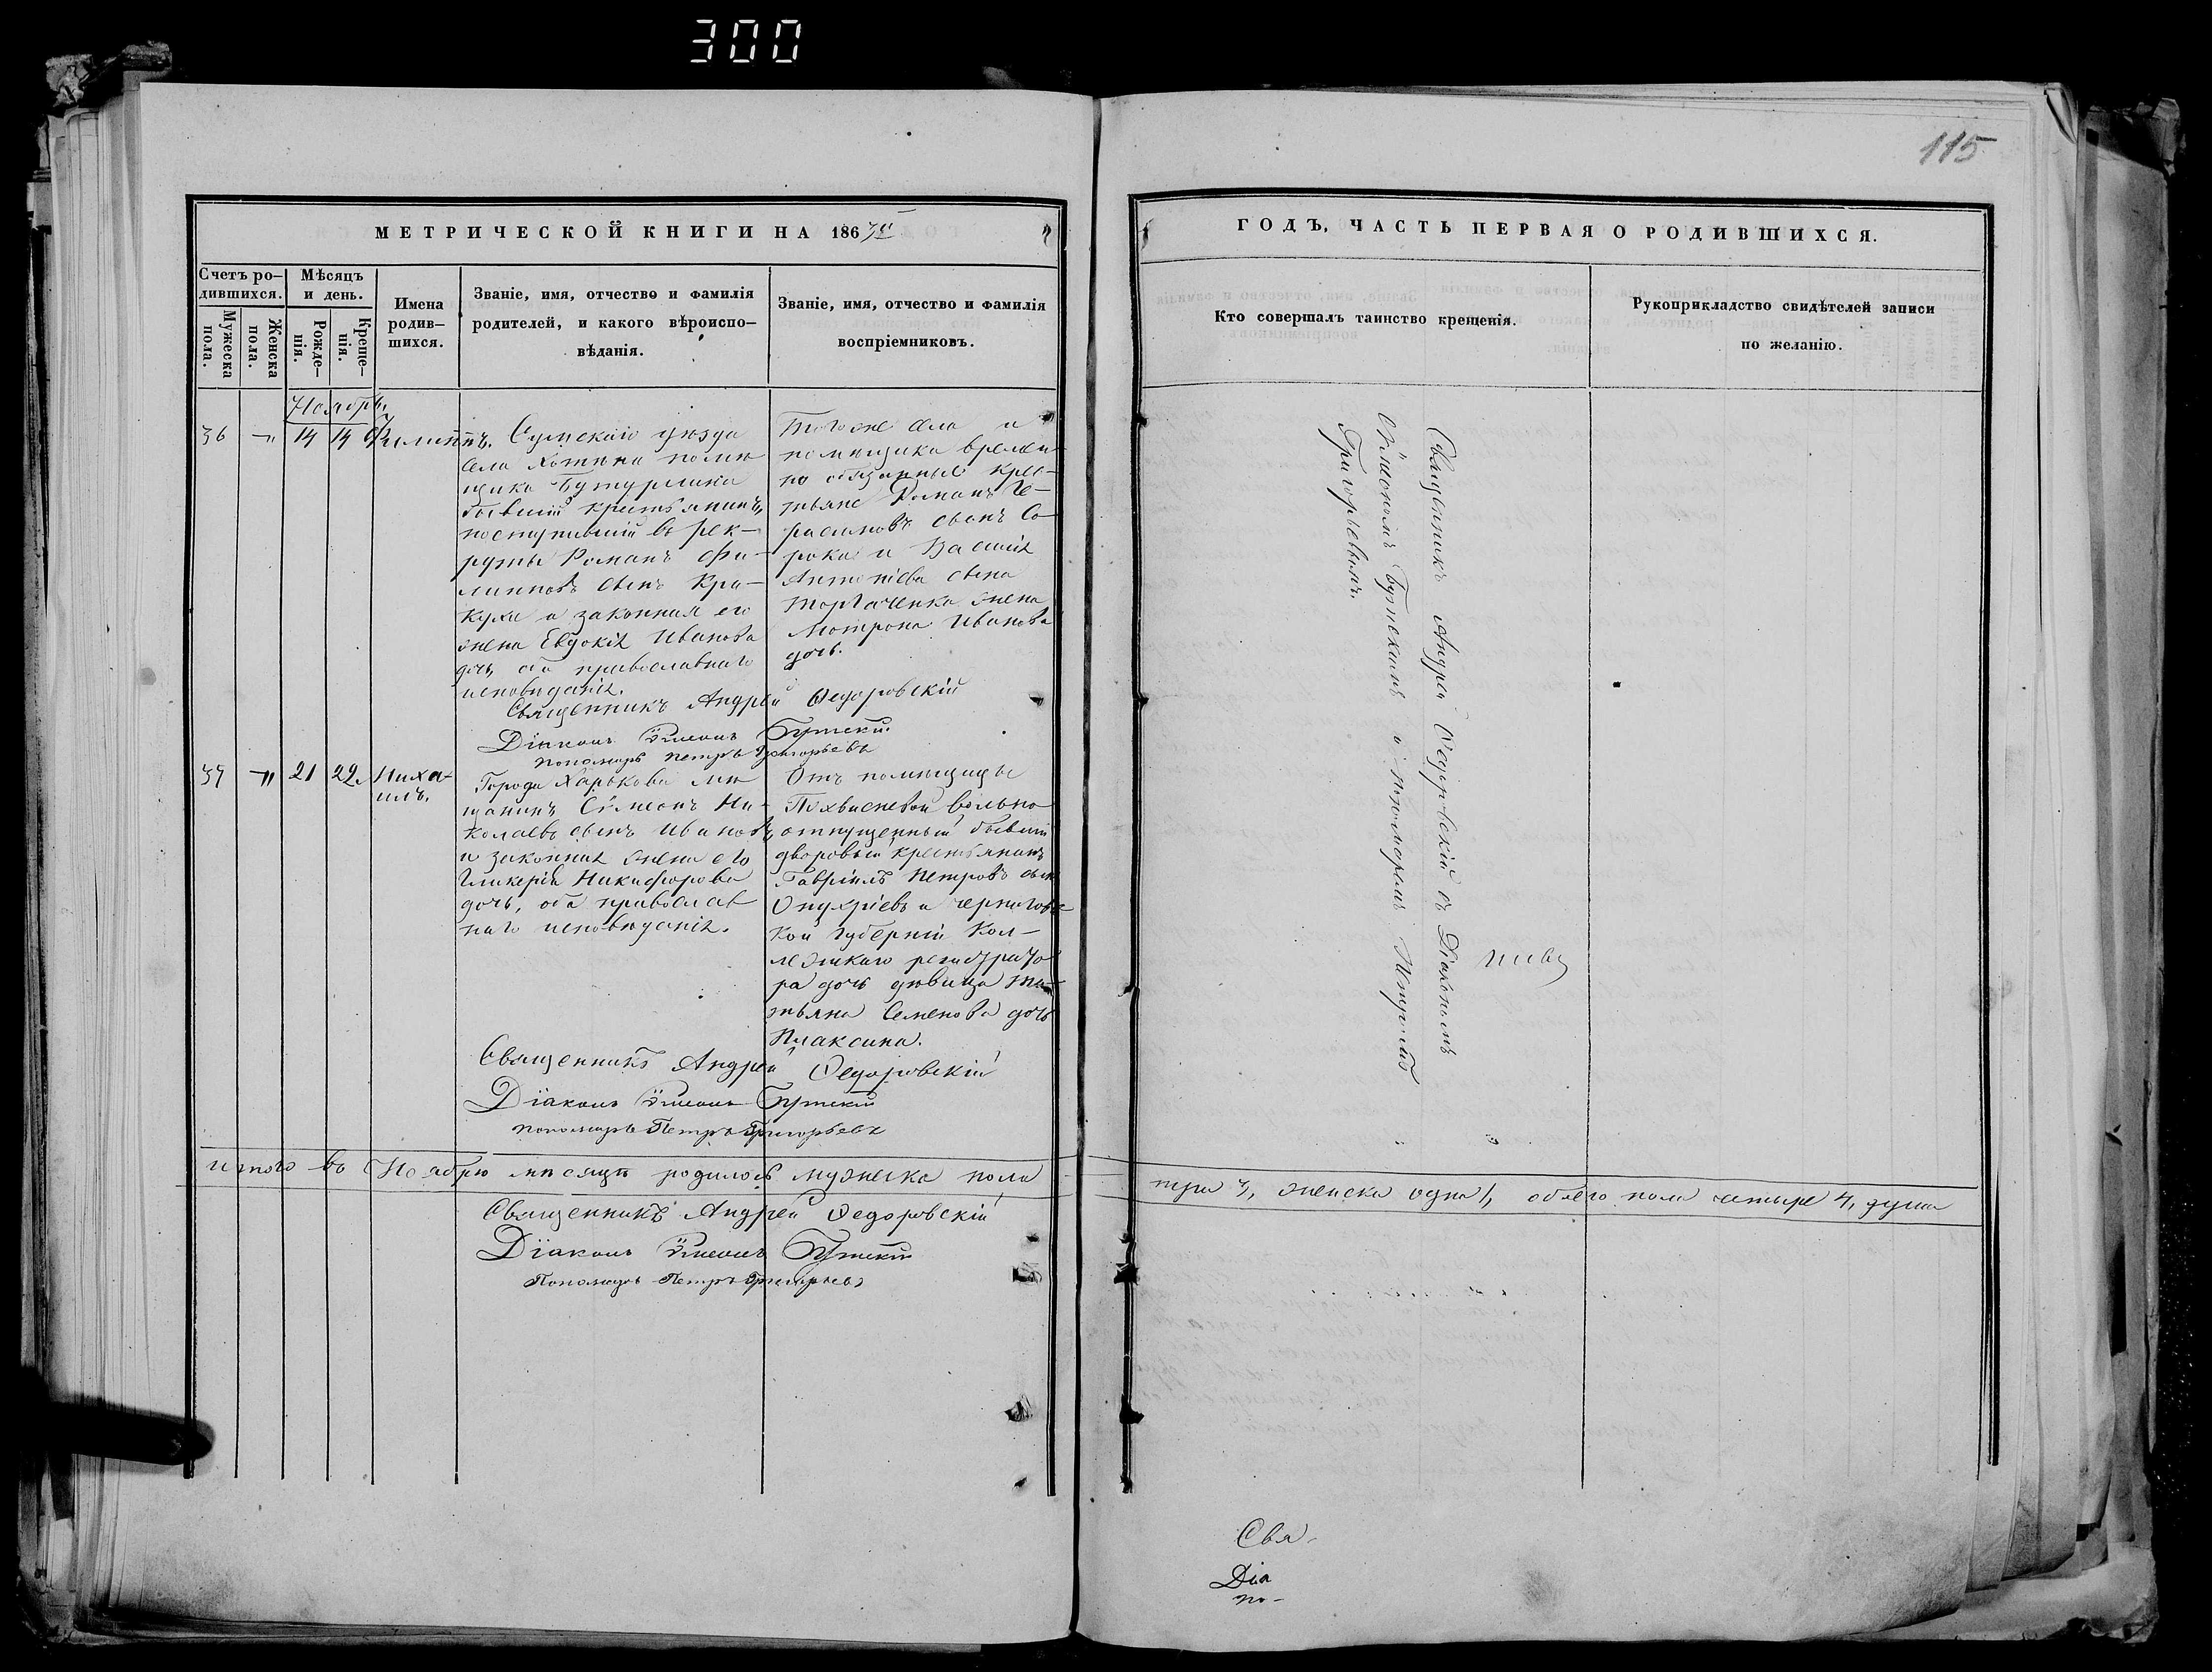 300
115
МЕТРИЧЕСКОЙ КНИГИ НА 1867й
ГОДЪ, ЧАСТЬ ПЕРВАЯ О РОДИВШИХСЯ.
Счетъ ро-
дившихся.
Мужеска
пола.
Женска
пола.
Мѣсяцъ
и день.
Рожде-
нія.
Креще-
нія.
Имена
родив-
шихся.
Званіе, имя, отчество и фамилія
родителей, и какого вѣроиспо-
вѣданія.
Званіе, имя, отчество и фамилія
воспріемниковъ.
Кто совершалъ таинство крещенія.
Рукоприкладство свидѣтелей записи
по желанію.
Ноябрь
36 14 14 Филиппъ.
Сумскаго уѣзда
села Хотѣни помѣ
щика Бутурлина
бывшій крестьянинъ,
поступившій въ рек-
руты Романъ Фи-
липповъ сынъ Кра-
кухи и законная его
жена Евдокія Иванова
дочь, оба православнаго
исповѣданія.
Тогоже села и
помѣщика времен
но обязанные крес-
тьяне Романъ Ге-
расимовъ сынъ Со-
рока и Василія
Антоніева сына
жена
Мотрона Иванова
дочь.
Священникъ Андрей Ѳедоровскій
Діаконъ Сѵмеонъ Бутскій
пономарь Петръ Григорьевъ
37 21 22. Миха-
илъ.
Города Харькова мѣ
щанинъ Сѵмеонъ Ни-
колаевъ сынъ Ивановъ
и законная жена его
Гликерія Никифорова
дочь, оба православ
наго исповѣданія.
Отъ помѣщицы
Похвисневой вольно
отпущенный бывшій
дворовый крестьянинъ
Гавріилъ Петровъ сын
Онуфріевъ и Черниговс
кой губерніи Кол-
лежскаго регистрато
ра дочь дѣвица Та-
тьяна Семенова дочь
Плаксина.
Священникъ Андрей Ѳедоровскій
Діаконъ Сѵмеонъ Бутскій
пономарь Петръ Григорьевъ
Священникъ Андрей Ѳедоровскій съ Діакономъ
Сѵмеономъ Бутскимъ и пономаремъ Петромъ
Григорьевымъ.
Итого въ Ноябрѣ мѣсяцѣ родилось мужеска пола
три 3, женска одна 1, обоего пола четыре 4, души
Священникъ Андрей Ѳедоровскій
Діаконъ Сѵмеонъ Бутскій
Пономарь Петръ Григорьевъ
Свя-
Діа
по-